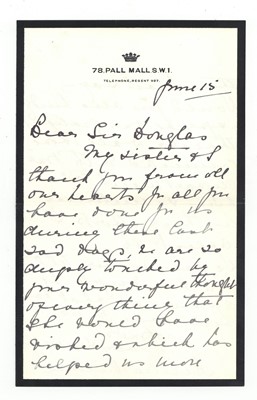 78, PALL MALL. S.W.1.
TELEPHONE, REGENT
June 15
Dear Sir Douglas
My sister & I
thank you from all
our hearts for all you
have done for us
during these last
sad days, we are so
deeply touched by
your wonderful thought
of everything that
she would have
wished & which has
helped us more